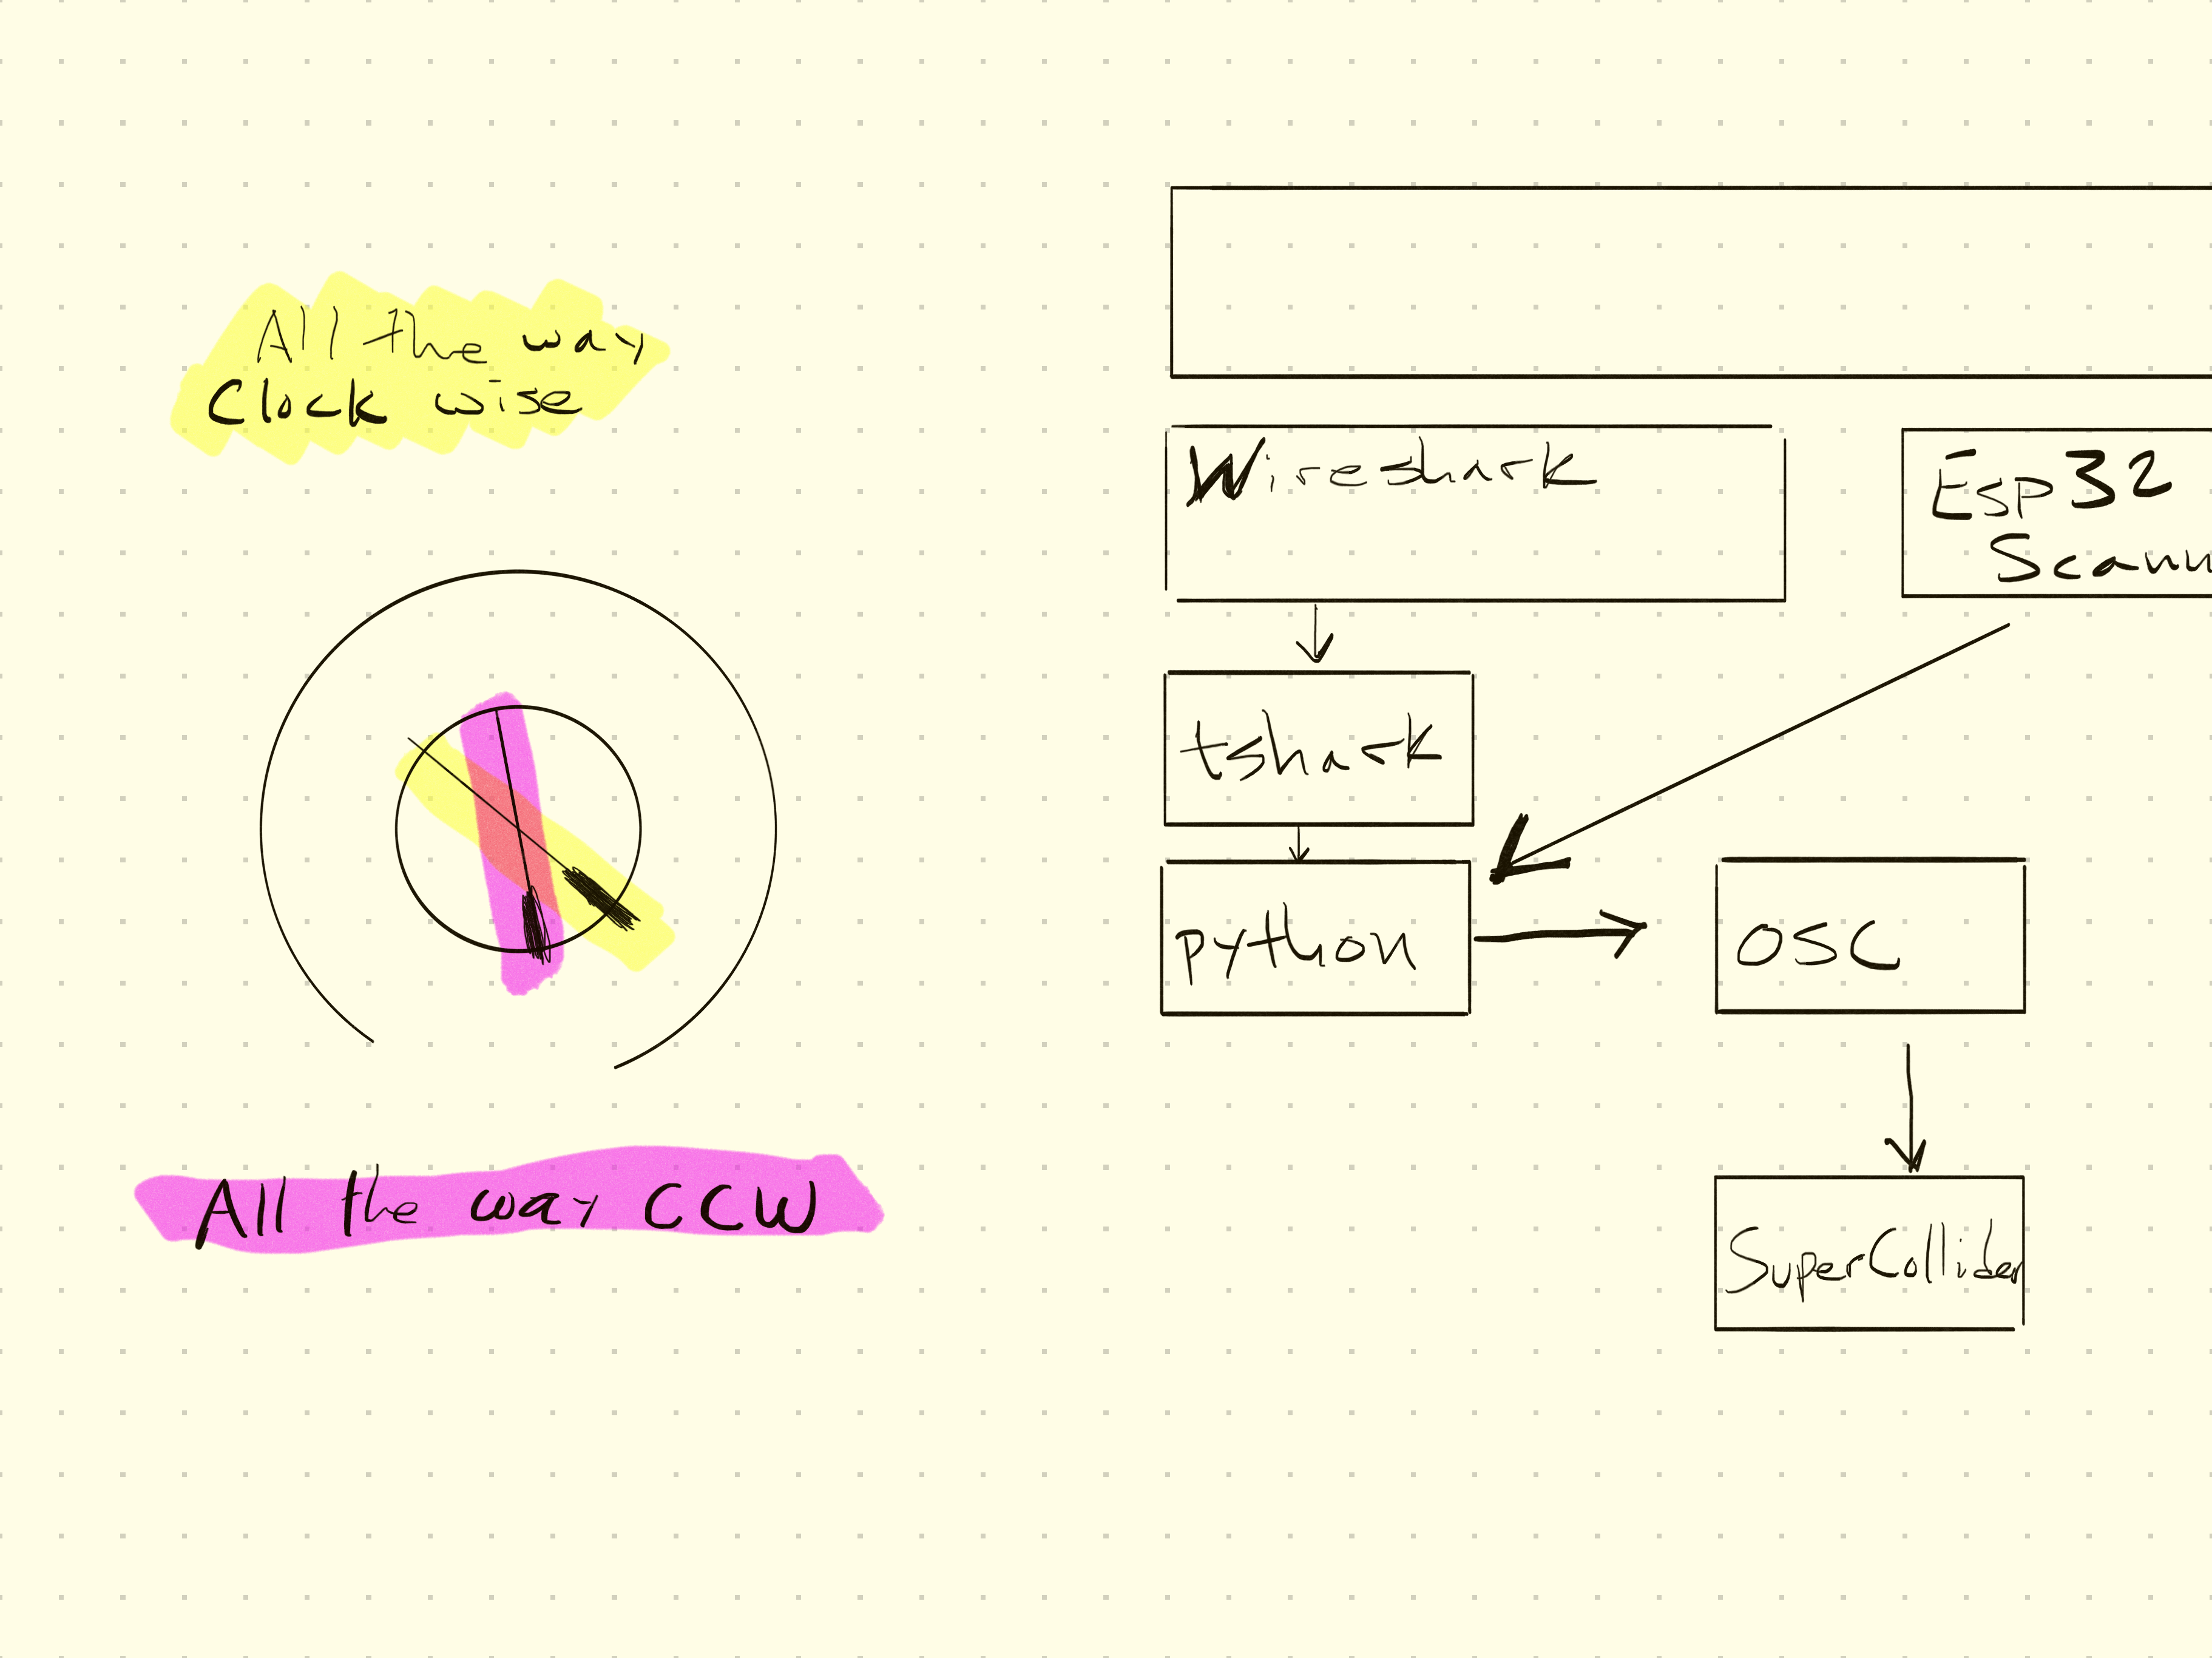 All the way
Clock wise
All the way CCW
Wireshark
Esp32
Scann
tshark
python
OSC
SuperCollider